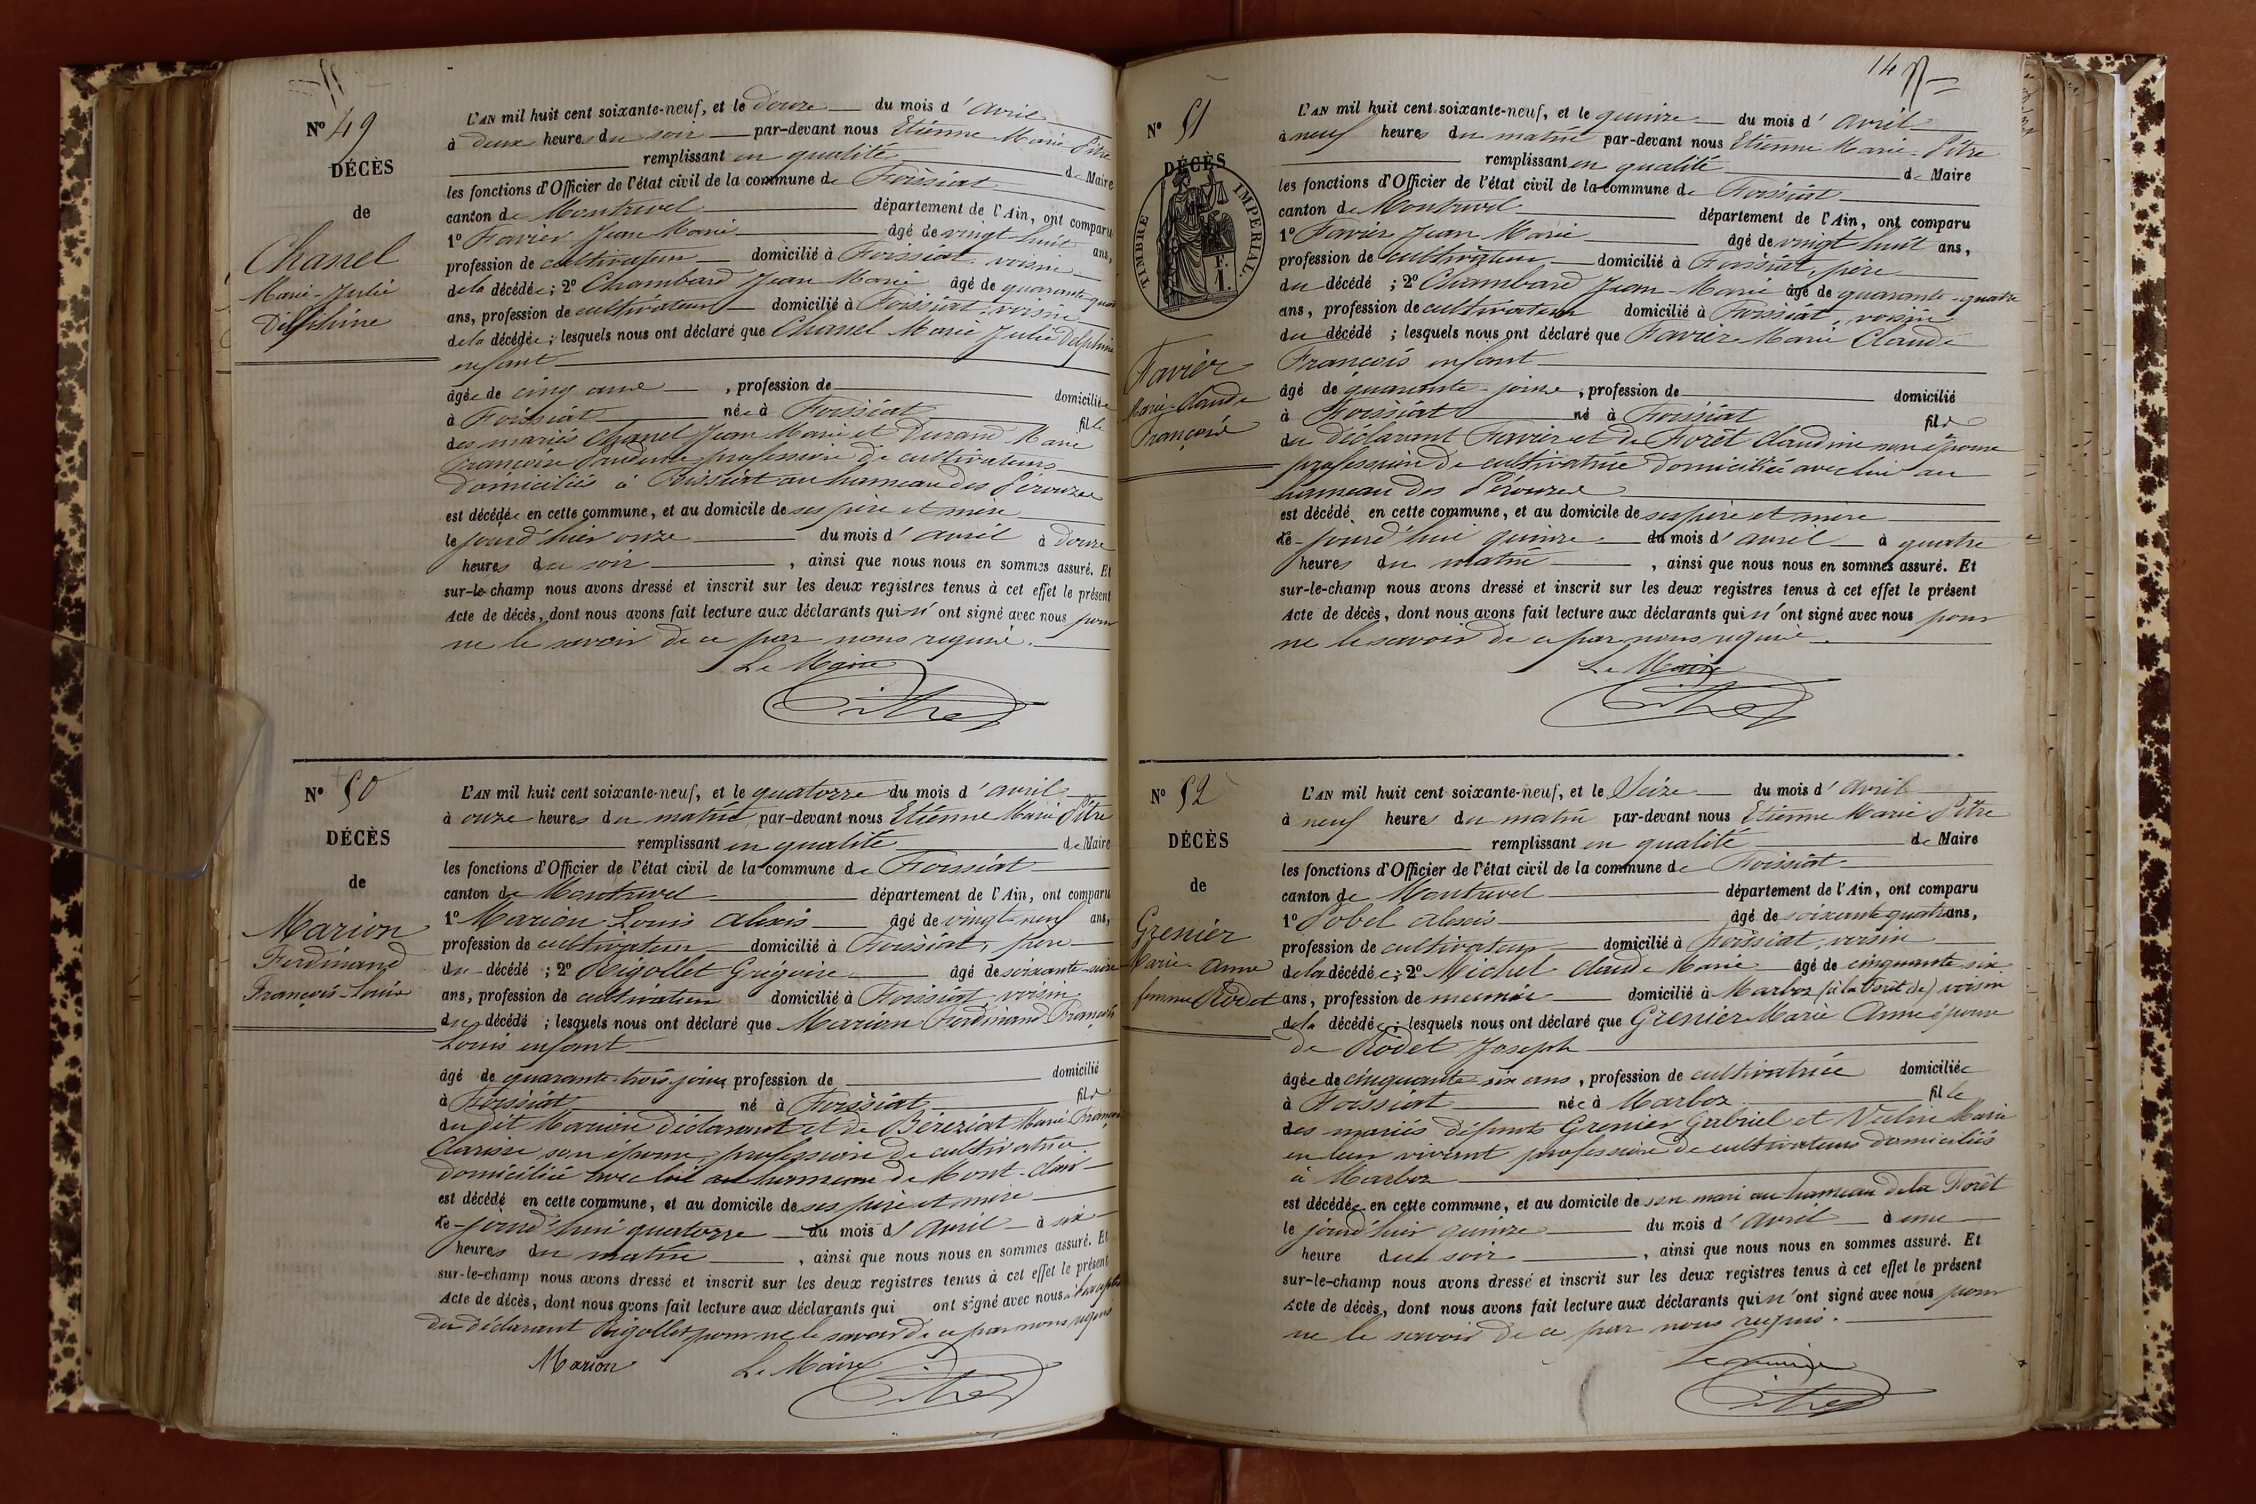 N° 49
DÉCÈS
de
Chanel
Marie-Julie
Delphine
L'AN mil huit cent soixante-neuf, et le douze du mois d'avril
à deux heures du soir par-devant nous Etienne Marie Pitre
remplissant en qualité de Maire
les fonctions d'Officier de l'état civil de la commune de Foissiat
canton de Montrevel département de l'Ain, ont comparu
1° Favier Jean Marie âgé de vingt huit ans,
profession de cultivateur domicilié à Foissiat, voisin
de la décédée; 2° Chambard Jean Marie âgé de quarante quatre
ans, profession de cultivateur domicilié à Foissiat, voisin
de la décédée; lesquels nous ont déclaré que Chanel Marie Julie Delphine
enfant
âgée de cinq ans, profession de domiciliée
à Foissiat née à Foissiat fille
des mariés Chanel Jean Marie et Durand Marie
Françoise profession de cultivateurs
domiciliés à Foissiat au hameau des Pérouzes
est décédée en cette commune, et au domicile de ses père et mère
le jourd'hier onze du mois d'avril à douze
heures du soir, ainsi que nous nous en sommes assuré. Et
sur-le-champ nous avons dressé et inscrit sur les deux registres tenus à cet effet le présent
Acte de décès, dont nous avons fait lecture aux déclarants qui n'ont signé avec nous pour
ne le savoir de ce par nous requis.
Le Maire
Pitre
N° 50
DÉCÈS
de
Marion
Ferdinand
François-Louis
L'AN mil huit cent soixante-neuf, et le quatorze du mois d'avril
à onze heures du matin par-devant nous Etienne Marie Pitre
remplissant en qualité de Maire
les fonctions d'Officier de l'état civil de la commune de Foissiat
canton de Montrevel département de l'Ain, ont comparu
1° Marion Louis Alexis âgé de vingt-neuf ans,
profession de cultivateur domicilié à Foissiat, père
du décédé; 2° Rigollet Grégoire âgé de soixante-seize
ans, profession de cultivateur domicilié à Foissiat, voisin
du décédé; lesquels nous ont déclaré que Marion Ferdinand François
Louis enfant
âgé de quarante-trois jours, profession de domicilié
à Foissiat né à Foissiat fils
du dit Marion déclarant et de Béréziat Marie Françoise
Clarisse son épouse, profession de cultivatrice
domiciliée avec lui au hameau de Mont-
est décédé en cette commune, et au domicile de ses père et mère
le jourd'hui quatorze du mois d'avril à six
heures du matin, ainsi que nous nous en sommes assuré. Et
sur-le-champ nous avons dressé et inscrit sur les deux registres tenus à cet effet le présent
Acte de décès, dont nous avons fait lecture aux déclarants qui ont signé avec nous
du déclarant Rigollet pour ne le savoir de ce par nous requis
Marion Le Maire
Pitre
14
N° 51
DÉCÈS
TIMBRE IMPERIAL.
F.
1.
Favier
Marie-Claude
François
L'AN mil huit cent soixante-neuf, et le quinze du mois d'avril
à neuf heures du matin par-devant nous Etienne Marie Pitre
remplissant en qualité de Maire
les fonctions d'Officier de l'état civil de la commune de Foissiat
canton de Montrevel département de l'Ain, ont comparu
1° Favier Jean Marie âgé de vingt huit ans,
profession de cultivateur domicilié à Foissiat, père
du décédé; 2° Chambard Jean-Marie âgé de quarante-quatre
ans, profession de cultivateur domicilié à Foissiat, voisin
du décédé; lesquels nous ont déclaré que Favier Marie Claude
François enfant
âgé de quarante jours, profession de domicilié
à Foissiat né à Foissiat fils
du déclarant Favier et de Forêt Claudine son épouse
profession de cultivatrice domiciliée avec lui au
hameau des Pérouzes
est décédé en cette commune, et au domicile de ses père et mère
le jourd'hui quinze du mois d'avril à quatre
heures du matin, ainsi que nous nous en sommes assuré. Et
sur-le-champ nous avons dressé et inscrit sur les deux registres tenus à cet effet le présent
Acte de décès, dont nous avons fait lecture aux déclarants qui n'ont signé avec nous pour
ne le savoir de ce par nous requis.
Le Maire
Pitre
N° 52
DÉCÈS
de
Grenier
Marie Anne
femme Rodet
L'AN mil huit cent soixante-neuf, et le Seize du mois d'avril
à neuf heures du matin par-devant nous Etienne Marie Pitre
remplissant en qualité de Maire
les fonctions d'Officier de l'état civil de la commune de Foissiat
canton de Montrevel département de l'Ain, ont comparu
1° Pobel Alexis âgé de soixante quatre ans,
profession de cultivateur domicilié à Foissiat, voisin
de la décédée; 2° Michel Claude Marie âgé de cinquante six
ans, profession de meunier domicilié à Marboz voisin
de la décédée; lesquels nous ont déclaré que Grenier Marie Anne épouse
de Rodet Joseph
âgée de cinquante six ans, profession de cultivatrice domiciliée
à Foissiat née à Marboz fille
des mariés défunts Grenier Gabriel et Marie
en leur vivant profession de cultivateurs domiciliés
à Marboz
est décédée en cette commune, et au domicile de son mari au hameau de la Forêt
le jourd'hier quinze du mois d'avril à une
heure du soir, ainsi que nous nous en sommes assuré. Et
sur-le-champ nous avons dressé et inscrit sur les deux registres tenus à cet effet le présent
Acte de décès, dont nous avons fait lecture aux déclarants qui n'ont signé avec nous pour
ne le savoir de ce par nous requis.
Le Maire
Pitre